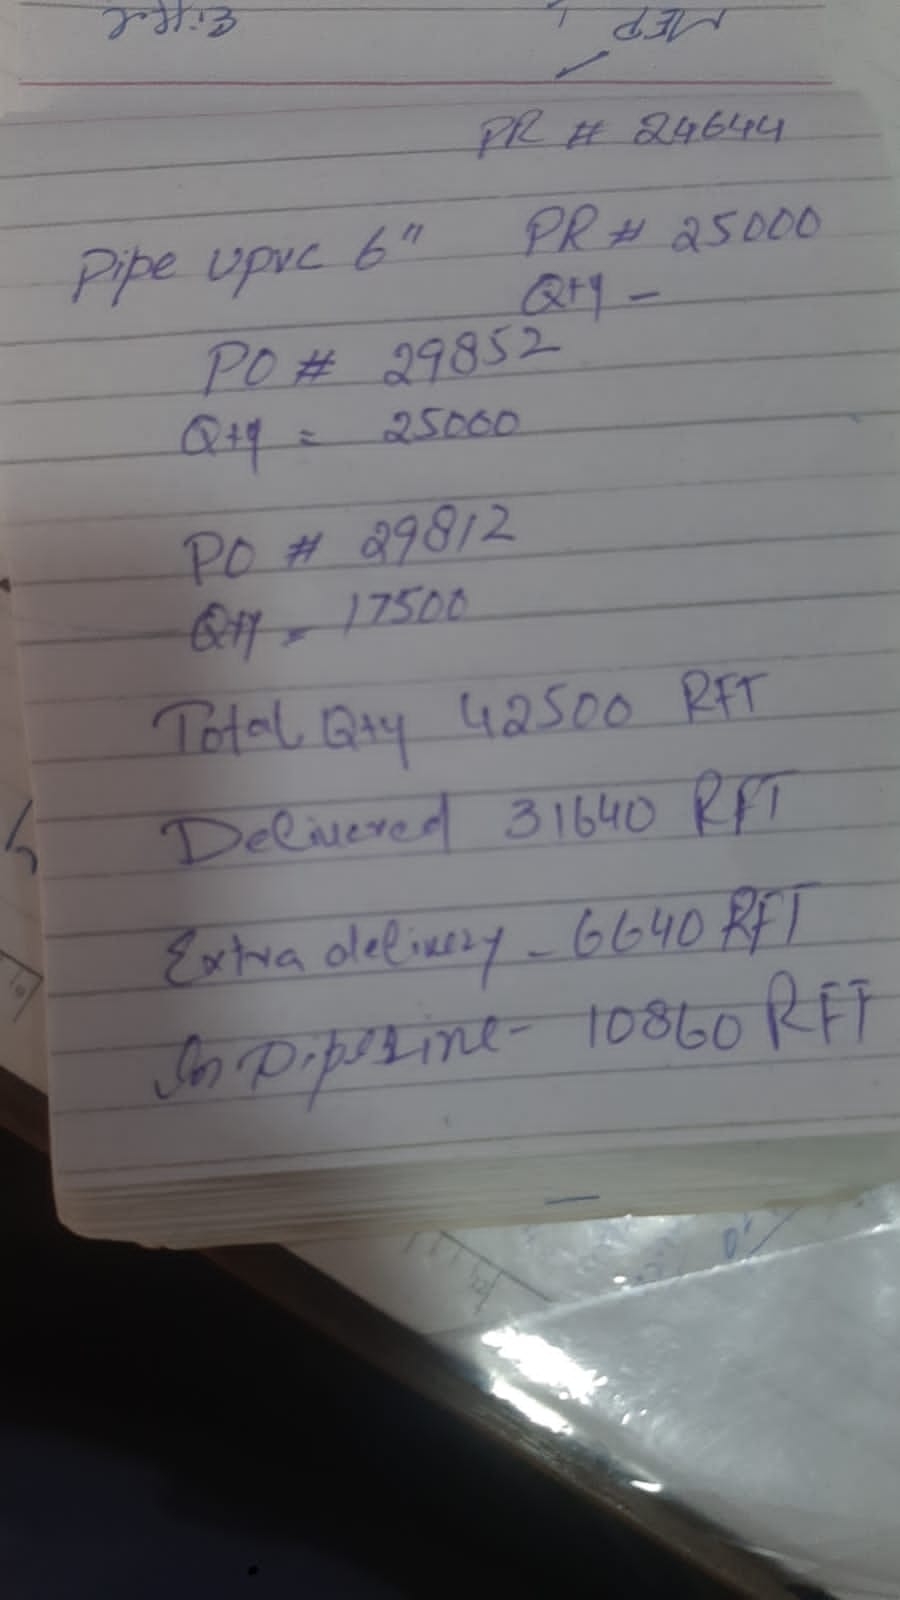 MEP
PR # 24644
Pipe upvc 6" PR # 25000
Qty -
PO # 29852
Qty = 25000
PO # 29812
Qty = 17500
Total Qty 42500 RFT
Delivered 31640 RFT
Extra delivery - 6640 RFT
In Pipeline - 10860 RFT